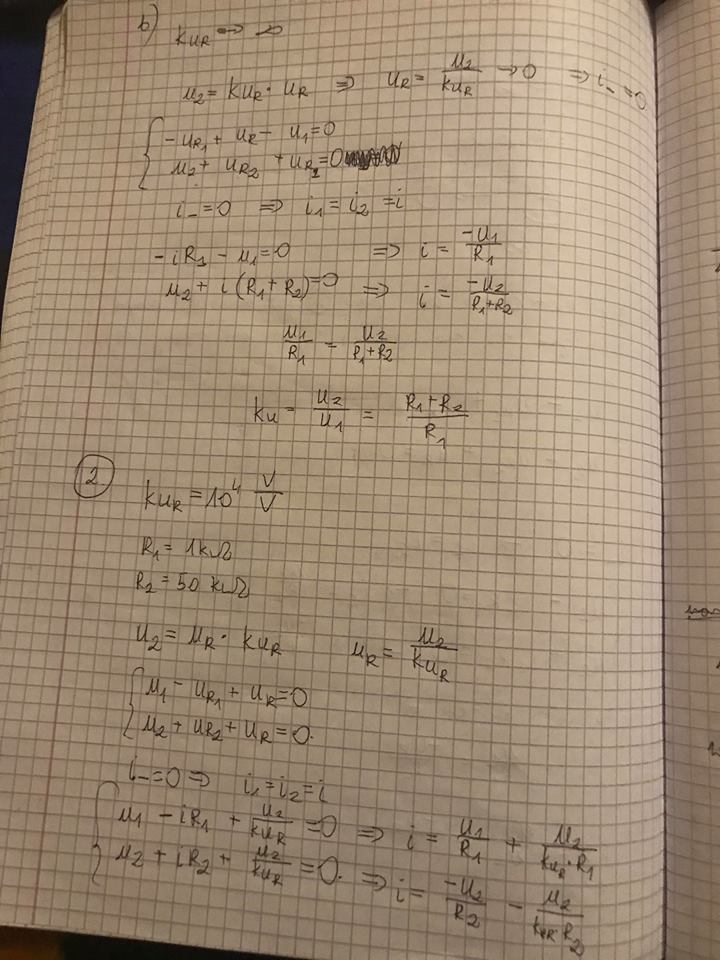 b) kuR → ∞
u2 = kuR · uR ⇒ uR = u2/kuR → 0 ⇒ i_ = 0
{ -uR1 + uR - u1 = 0
u2 + uR2 + uR1 = 0
i_ = 0 ⇒ i1 = i2 = i
-iR1 - u1 = 0 ⇒ i = -u1/R1
u2 + i(R1 + R2) = 0 ⇒ i = -u2/R1+R2
u1/R1 = u2/R1+R2
ku = u2/u1 = R1+R2/R1
2 kuR = 10^4 V/V
R1 = 1kΩ
R2 = 50 kΩ
u2 = uR · kuR uR = u2/kuR
{ u1 - uR1 + uR = 0
u2 + uR2 + uR = 0.
i_ = 0 ⇒ i1 = i2 = i
{ u1 - iR1 + u2/kuR = 0 ⇒ i = u1/R1 + u2/kuR·R1
u2 + iR2 + u2/kuR = 0. ⇒ i = -u2/R2 - u2/kuR·R2